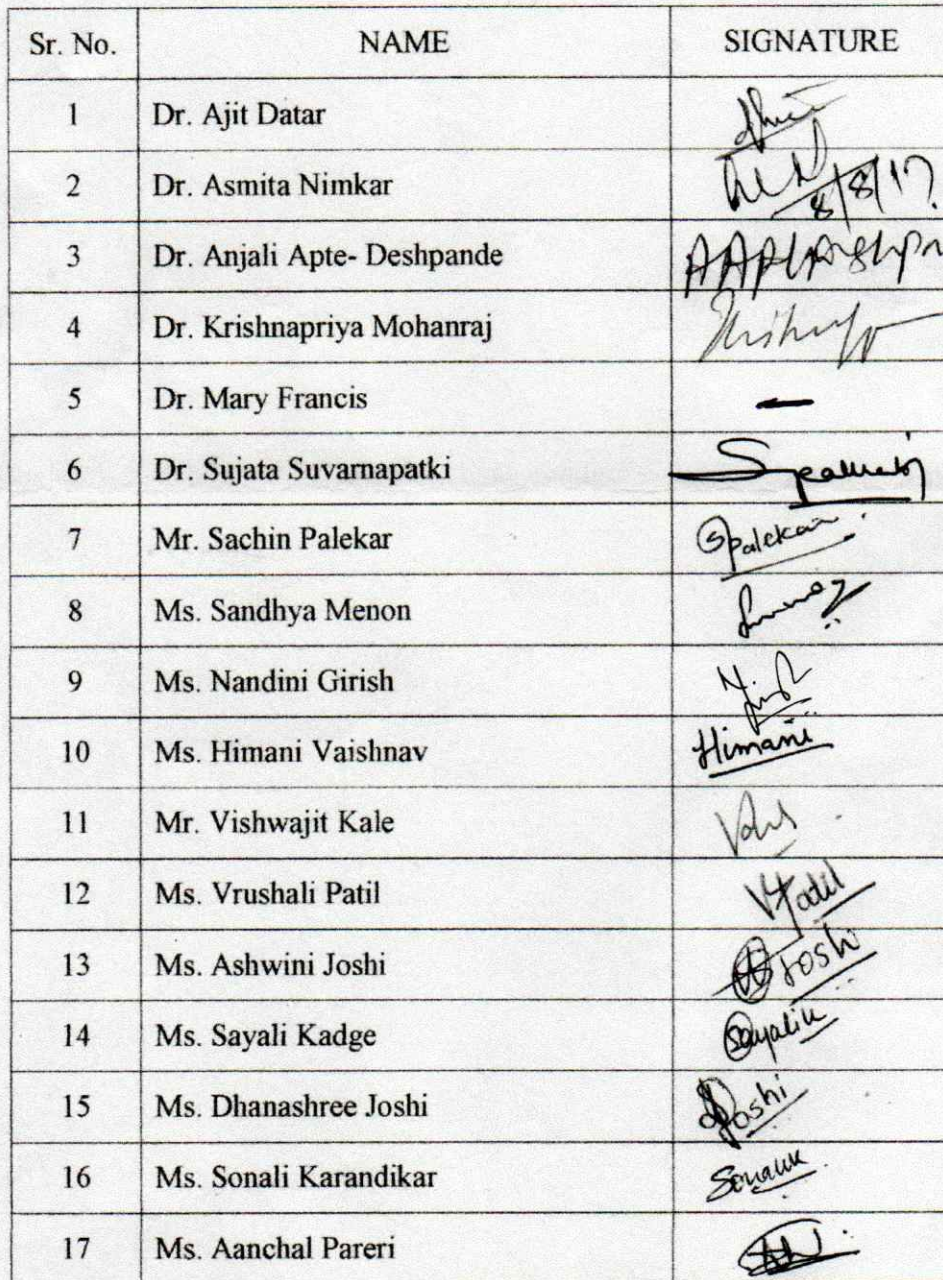 Sr. No. NAME SIGNATURE
1 Dr. Ajit Datar
2 Dr. Asmita Nimkar 8/8/17
3 Dr. Anjali Apte- Deshpande
4 Dr. Krishnapriya Mohanraj
5 Dr. Mary Francis -
6 Dr. Sujata Suvarnapatki
7 Mr. Sachin Palekar SPalekar
8 Ms. Sandhya Menon
9 Ms. Nandini Girish
10 Ms. Himani Vaishnav Himani
11 Mr. Vishwajit Kale
12 Ms. Vrushali Patil VPatil
13 Ms. Ashwini Joshi AJoshi
14 Ms. Sayali Kadge SayaliK
15 Ms. Dhanashree Joshi DJoshi
16 Ms. Sonali Karandikar SonaliK
17 Ms. Aanchal Pareri